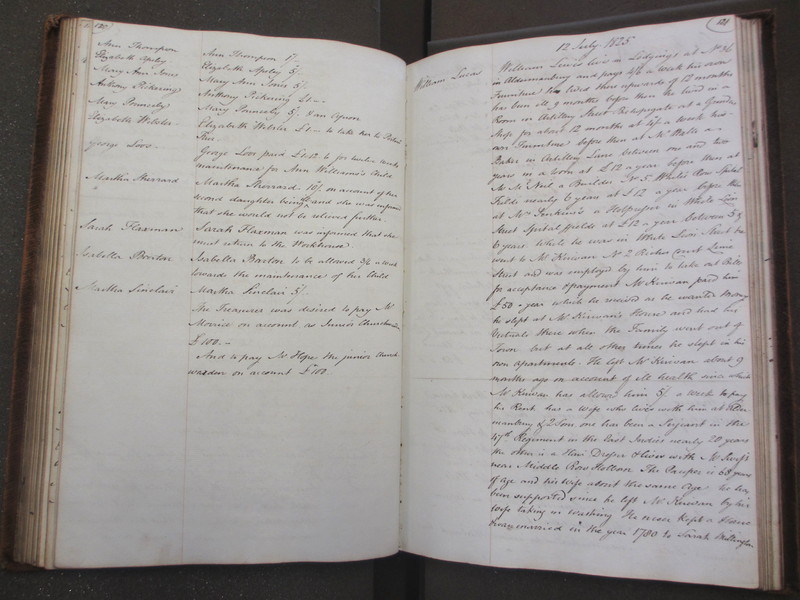 120
Ann Thompson Ann Thompson 1/-
Elizabeth Apsley Elizabeth Apsley 5/-
Mary Ann Jones Mary Ann Jones 5/-
Anthony Pickering Anthony Pickering £1--
Mary Mary 5/. & an Apron
Elizabeth Webster Elizabeth Webster £1-- to take her to
George Loss George Loss paid £1.12. for twelve weeks
maintenance for Ann William's Child
Martha Sherrard Martha Sherrard 10/. on account of her
second daughter being and she was informed
that she would not be relieved further
Sarah Flaxman Sarah Flaxman was informed that she
must return to the Workhouse
Isabella Barton Isabella Barton to be allowed 3/6 a week
towards the maintenance of her Child
Martha Sinclair Martha Sinclair 5/-
The Treasurer was desired to pay Mr
on account as Junior Churchwarden
£100.-
And to pay Mr Hope the junior Church
warden on account £100
121
12 July 1825
William Lucas William Lucas lives in Lodgings at No 36
in Aldermanbury and pays 4/6 a week his own
Furniture has lived there upwards of 12 months
has been ill 9 months before then he lived in a
Room in Artillery Street Bishopsgate at a
Shop for about 12 months at 4/6 a week his
own Furniture before then at Mr Wells a
Baker in Artillery Lane between one and two
years in a room at £12 a year before then at
Mr Mc Neil a Builder No 5 White's Row Spital
Fields nearly 6 years at £12 a year before then
at Mr Jenkins's a in White Lion
Street Spital fields at £12 a year between 5 &
6 years. While he was in White Lion Street he
went to Mr Kirwan No 2 Riches Court Lime
Street and was employed by him to take out Bills
for acceptance & payment Mr Kirwan paid him
£50 a year which he received as he wanted Money
he slept at Mr Kirwan's House and had his
Victuals there when the Family went out of
Town but at all other times he slept in his
own apartments. He left Mr Kirwan about 9
months ago on account of ill health since which
Mr Kirwan has allowed him 5/. a week to pay
his Rent has a Wife who lives with him at Alder
manbury & 2 Sons, one has been a Serjeant in the
47th Regiment in the East Indies nearly 20 years
the other is a & lives with Mr
near Middle Row Holborn The Pauper is 68 years
of age and his Wife about the same age he has
been supported since he left Mr Kirwan by his
Wife taking in washing He never kept a House
he was married in the year 1780 to Sarah